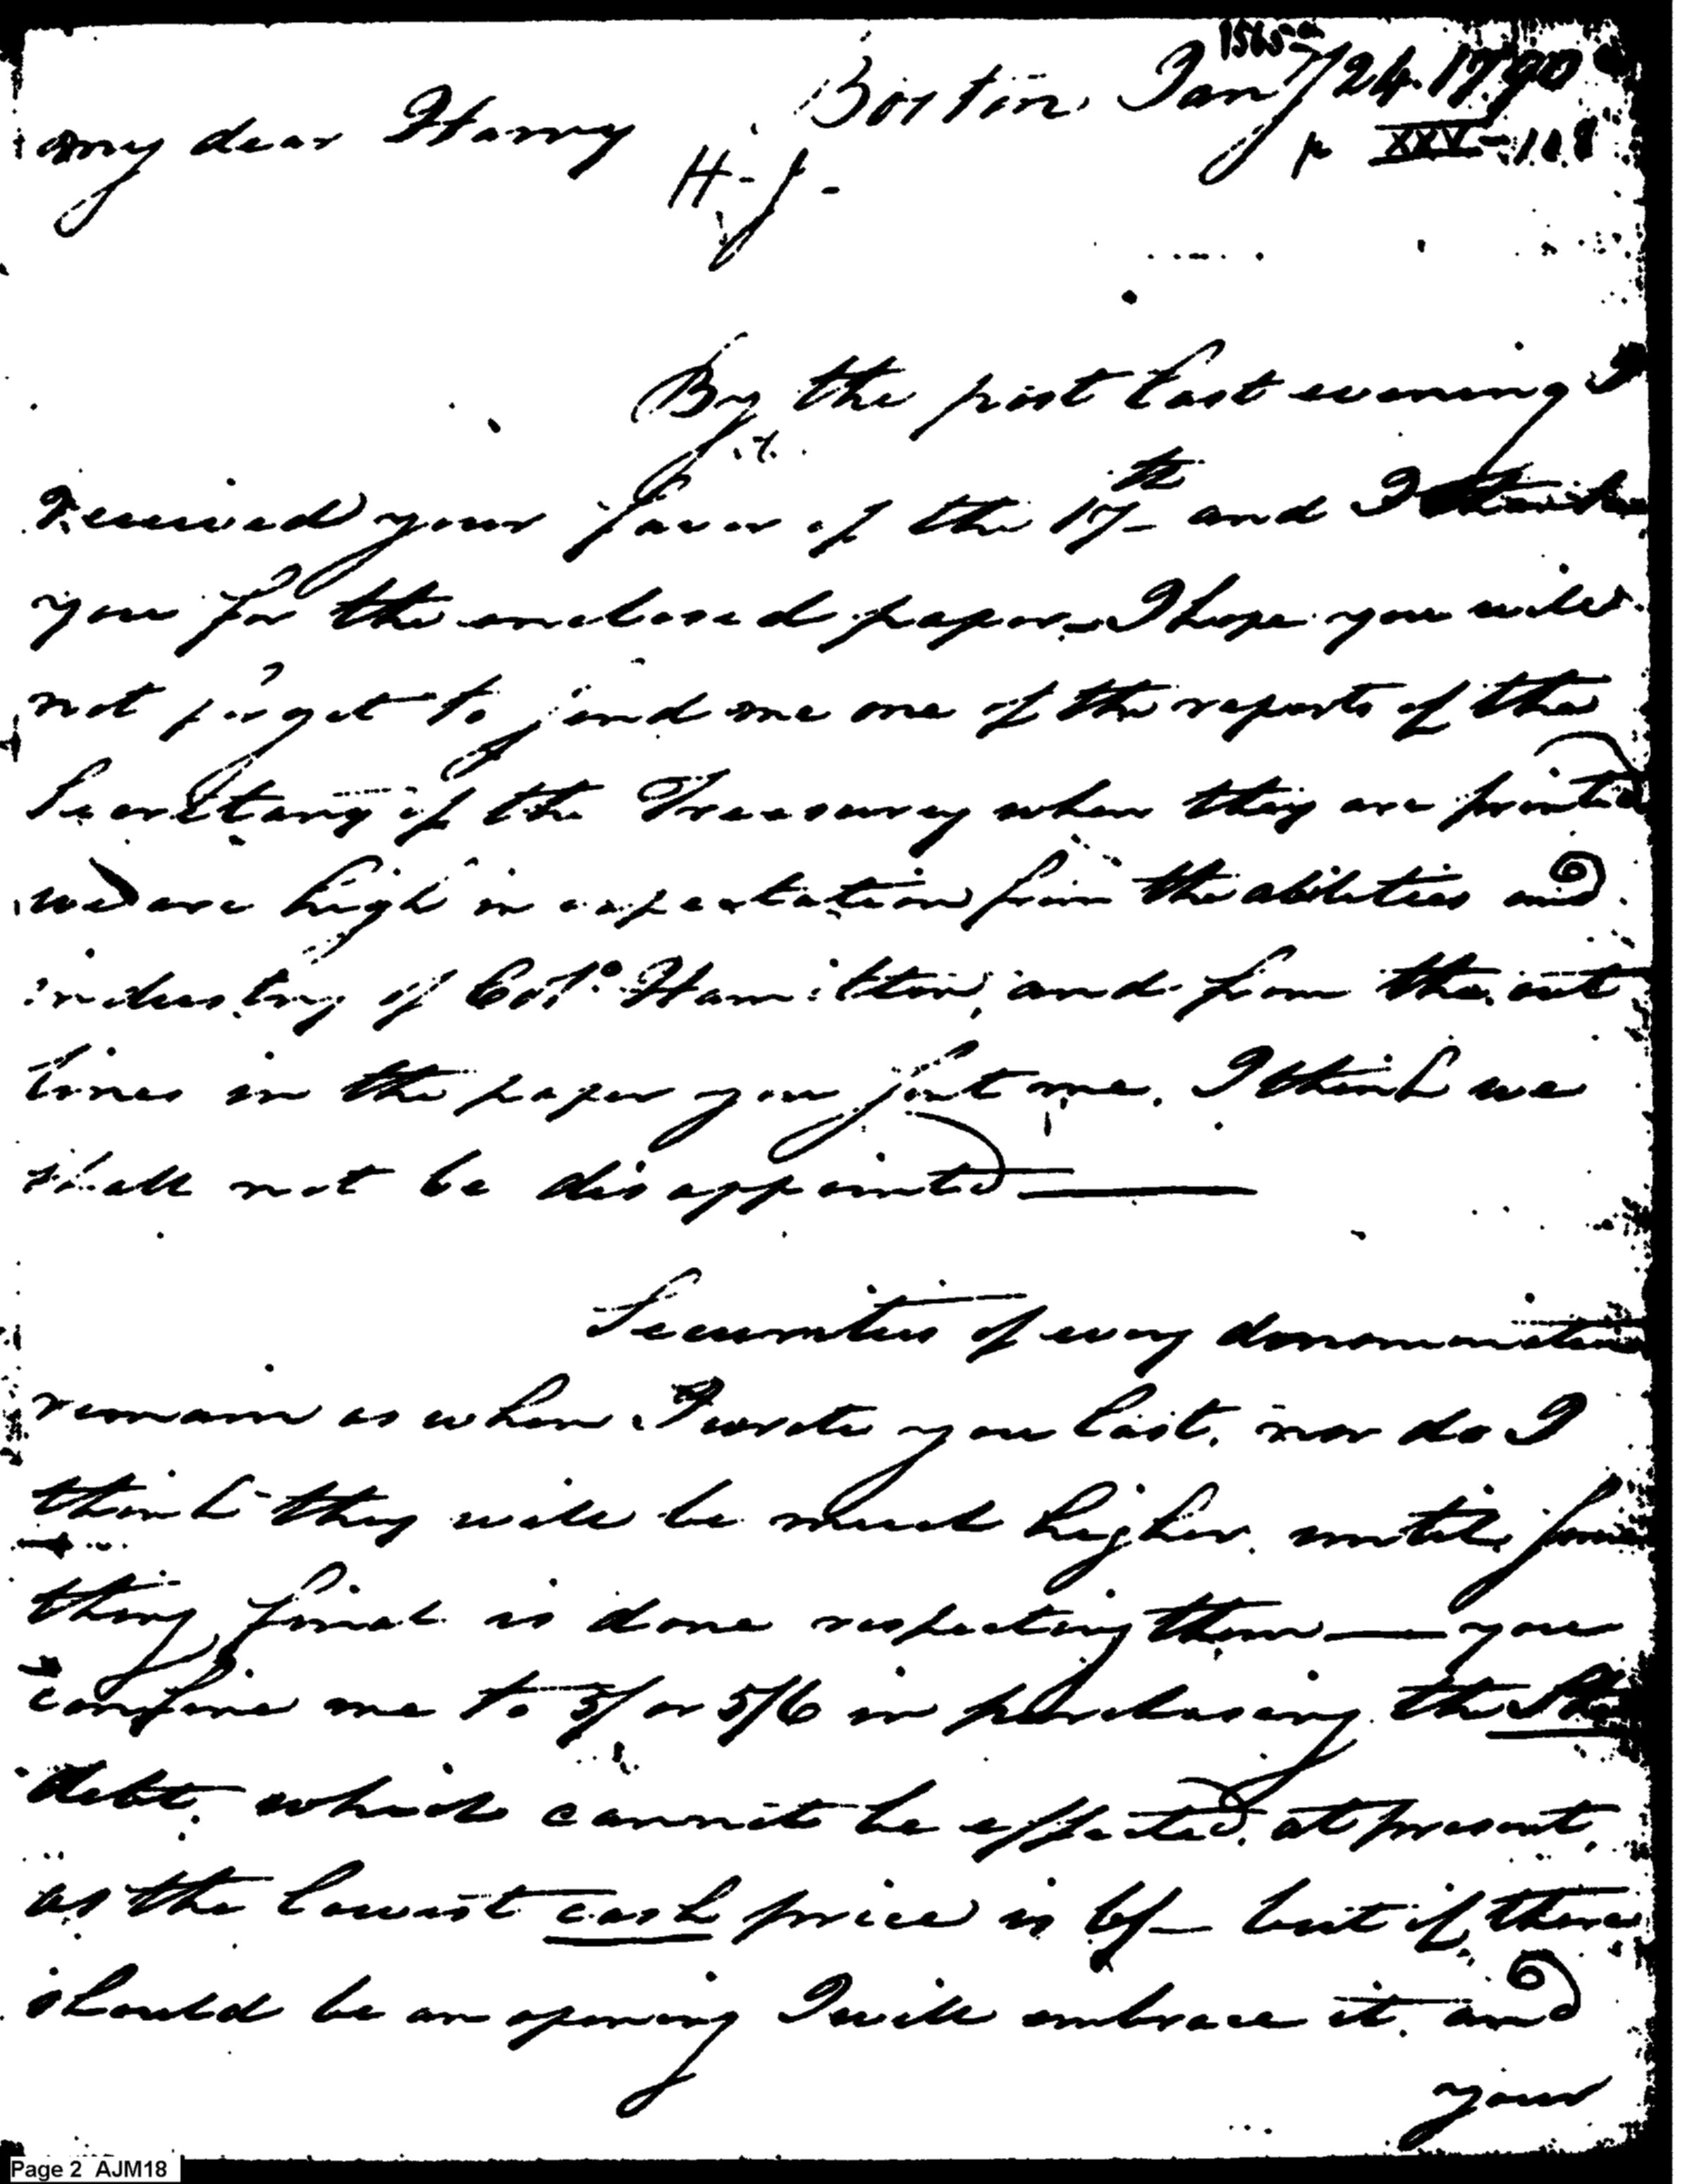 1565a
Boston Jany 24. 1790
my dear Harry
p XXV-118
H. J-
By the post last evening I
received your favor of the 17th and I thank
you for the enclosed paper - I hope you will
not forget to send me one of the reports of the
Secretary of the Treasury when they are printed
we are high in expectation from the abilities and
industry of Colo. Hamilton, and from the out
lines in the paper you sent me, I think we
shall not be disappointed ——
Securities of every denomination
remain as when I wrote you last, nor do I
think they will be much higher, until some
thing final is done respecting them — you
confine me to 5/ or 5/6 in purchasing the State
debt, which cannot be effected, at present,
as the lowest cash price is 6/— but if there
should be an opening I will embrace it, and
your
Page 2 AJM18